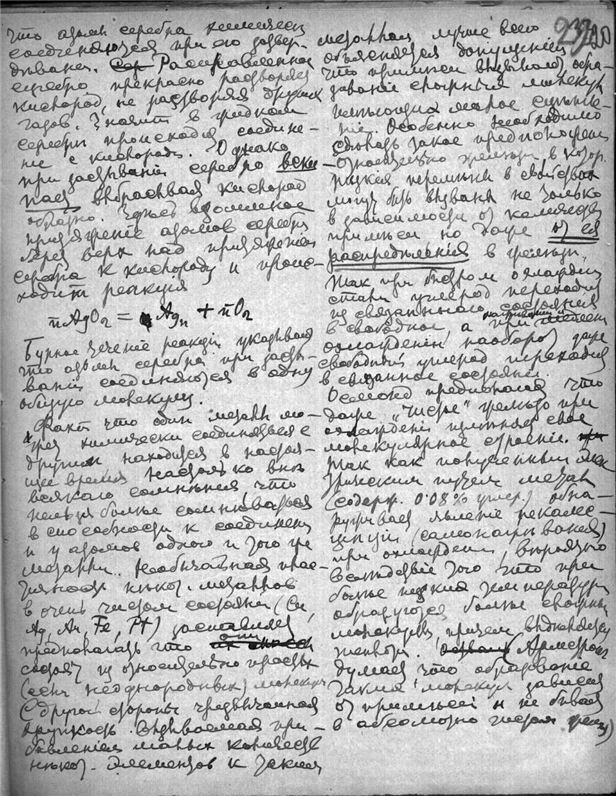 что атомы серебра химически
соединяются при его затвер-
девании. Расплавленное
серебро прекрасно растворяет
кислород, не растворяя других
газов. Значит в жидком
серебре происходит соедине-
ние с кислородом. Однако
при застывании серебро вски-
пает выбрасывая кислород
обратно. Здесь взаимное
притяжение атомов серебра
берет верх над притяжением
серебра к кислороду и проис-
ходит реакция
n AgO2 = Agn + nO2
Бурное течение реакции указывает
что атомы серебра при засты-
вании соединяются в одну
общую молекулу.
Факт что один металл мо-
жет химически соединяться с
другим находится в настоя-
щее время настолько вне
всякого сомнения что
нельзя больше сомневаться
в способности к соединению
и у атомов одного и того же
металла. Необычайная
некот. металлов
в очень чистом состоянии (
Ag, Au, Fe, Pt) заставляет
предполагать что они
состоят из относительно простых
молекул
С другой стороны чрезвычайная
хрупкость вызываемая при-
бавлением малых количеств
некот. элементов к таким
239
металлам лучше всего
объясняется допущением
что примеси вызывают обра-
зование сложных молекул
имеющих малое сцепле-
ние. Особенно необходимо
сделать такое предположение
относительно железа, в котор.
резкия перемены в свойствах
могут быть вызваны не только
в зависимости от количества
примеси но даже от ея
распределения в железе.
Так при быстром охлаждении
стали углерод переходит
из связанного состояния
в свободное, а при
охлаждении наоборот даже
свободный углерод переходит
в связанное состояние.
Осмонд предполагал что
даже "чистое" железо при
охлаждении изменяет свое
молекулярное строение.
Так как полученный элек-
трическим путем металл
(содерж. 0.08% углер.) обна-
руживает явление рекалес-
ценции (самонакаливания)
при охлаждении, вероятно
вследствие того что при
более низких температурах
образуются более сложные
молекулы причем выделяется
думает что образование
таких молекул зависит
от примесей и не бывает
в абсолютно чистом железе)